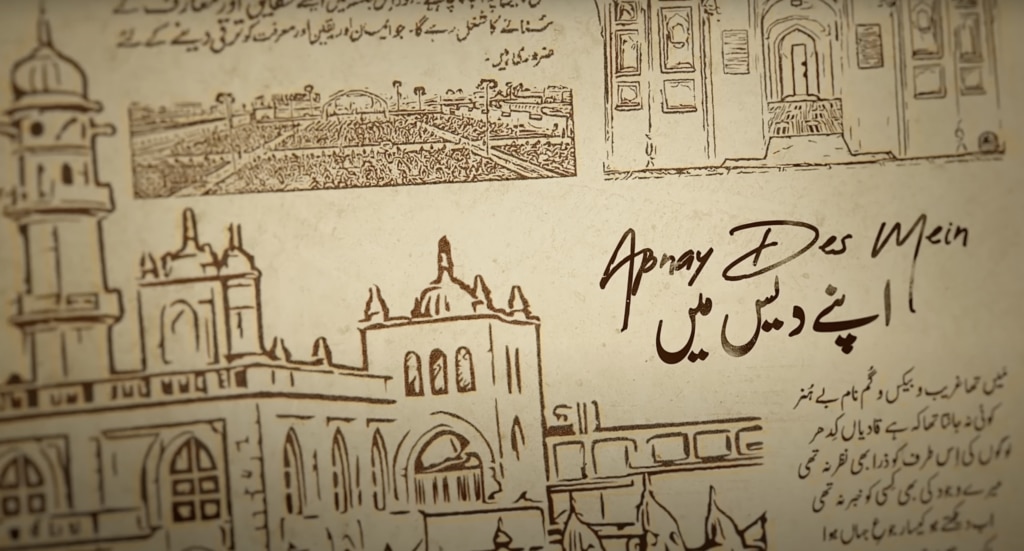 حقائق اور معارف کے
سنانے کا شغل رہے گا۔ جو ایمان اور یقین اور معرفت کو ترقی دینے کے لئے
ضروری ہیں۔
Apnay Des Mein
اپنے دیس میں
میں تھا غریب و بیکس و گُم نام بے ہُنر
کوئی نہ جانتا تھا کہ ہے قادیاں کِدھر
لوگوں کی اِس طرف کو ذرا بھی نظر نہ تھی
میرے وجود کی بھی کسی کو خبر نہ تھی
اب دیکھتے ہو کیسا رجوعِ جہاں ہوا